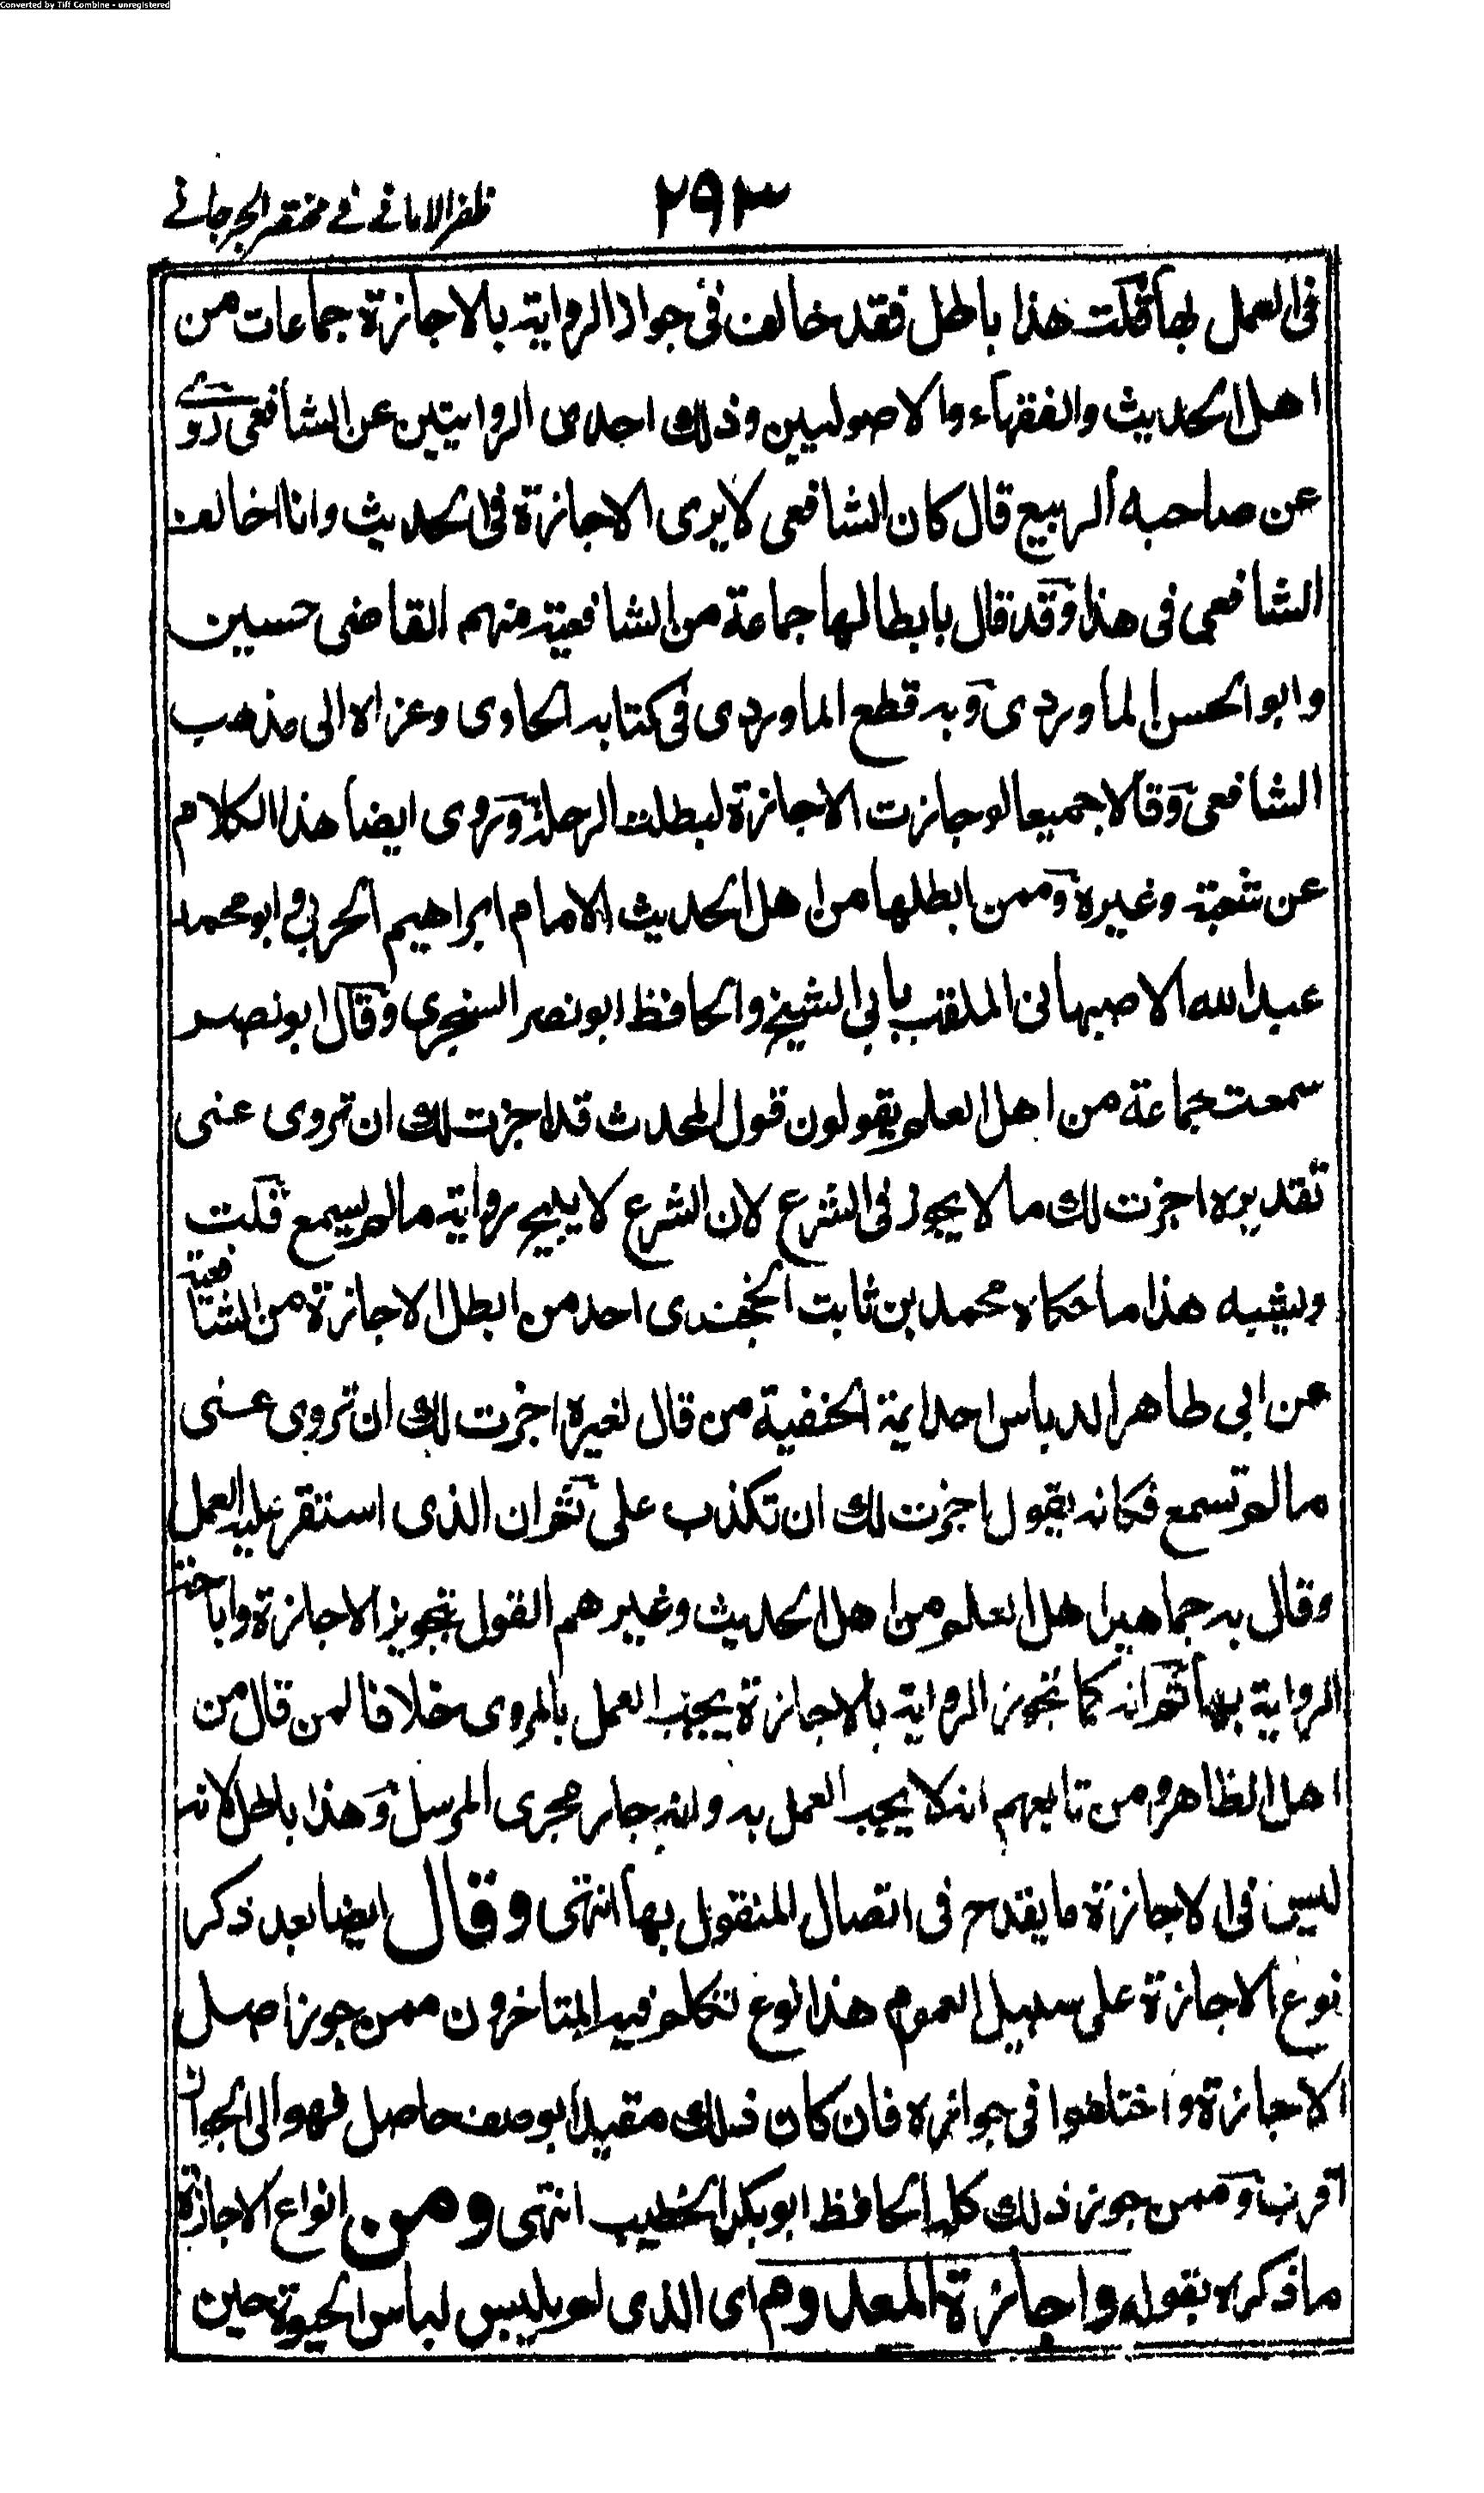 Converted by Tiff Combine - unregistered
٢٩٣ ظفر الامانے فے مختصر الجرجانے
فى العمل بها قلت هذا باطل فقد خالف فى جواز الرواية بالاجازة جماعات من
اهل الحديث والفقهاء والاصوليين وذلك احدى الروايتين عن الشافعى روى
عن صاحبه الربيع قال كان الشافعى لا يرى الاجازة فى الحديث وانا اخالف
الشافعى فى هذا وقد قال بابطالها جماعة من الشافعية منهم القاضى حسين
وابو الحسن الماوردى وبه قطع الماوردى فى كتابه الحاوى وعزاه الى مذهب
الشافعى وقالا جميعا لو جازت الاجازة لبطلت الرحلة وروى ايضا هذا الكلام
عن شعبة وغيره وممن ابطلها من اهل الحديث الامام ابراهيم الحربى و ابو محمد
عبد الله الاصبهانى الملقب بابى الشيخ والحافظ ابو نصر السنجرى وقال ابو نصر
سمعت جماعة من اهل العلم يقولون قول المحدث قد اجزت لك ان تروى عنى
تقديره اجزت لك ما لا يجوز فى الشرع لان الشرع لا يبيح رواية ما لم يسمع قلت
ويشبه هذا ما حكاه محمد بن ثابت الخجندى احد من ابطل الاجازة من الشافعية
عن ابى طاهر الدباس احد ايمة الحنفية من قال لغيره اجزت لك ان تروى عنى
ما لم تسمع فكانه يقول اجزت لك ان تكذب على ثم ان الذى استقر عليه العمل
وقال به جماهير اهل العلم من اهل الحديث وغيرهم القول بتجويز الاجازة واباحة
الرواية بها ثم انه كما تجوز الرواية بالاجازة يجب العمل بالمروى خلافا لمن قال من
اهل الظاهر ومن تابعهم انه لا يجب العمل به وانه جار مجرى المرسل وهذا باطل لانه
ليس فى الاجازة ما يقدح فى اتصال المنقول بها انتهى وقال ايضا بعد ذكر
نوع الاجازة على سبيل العموم هذا نوع تكلم فيه المتاخرون ممن جوز اصل
الاجازة و اختلفوا فى جوازه فان كان ذلك مقيدا بوصف حاصل فهو الى الجواز
اقرب وممن جوز ذلك كله الحافظ ابو بكر الخطيب انتهى ومن انواع الاجازة
ما ذكره بقوله واجازة المعدوم اى الذى لم يلبس لباس الحيوة حين